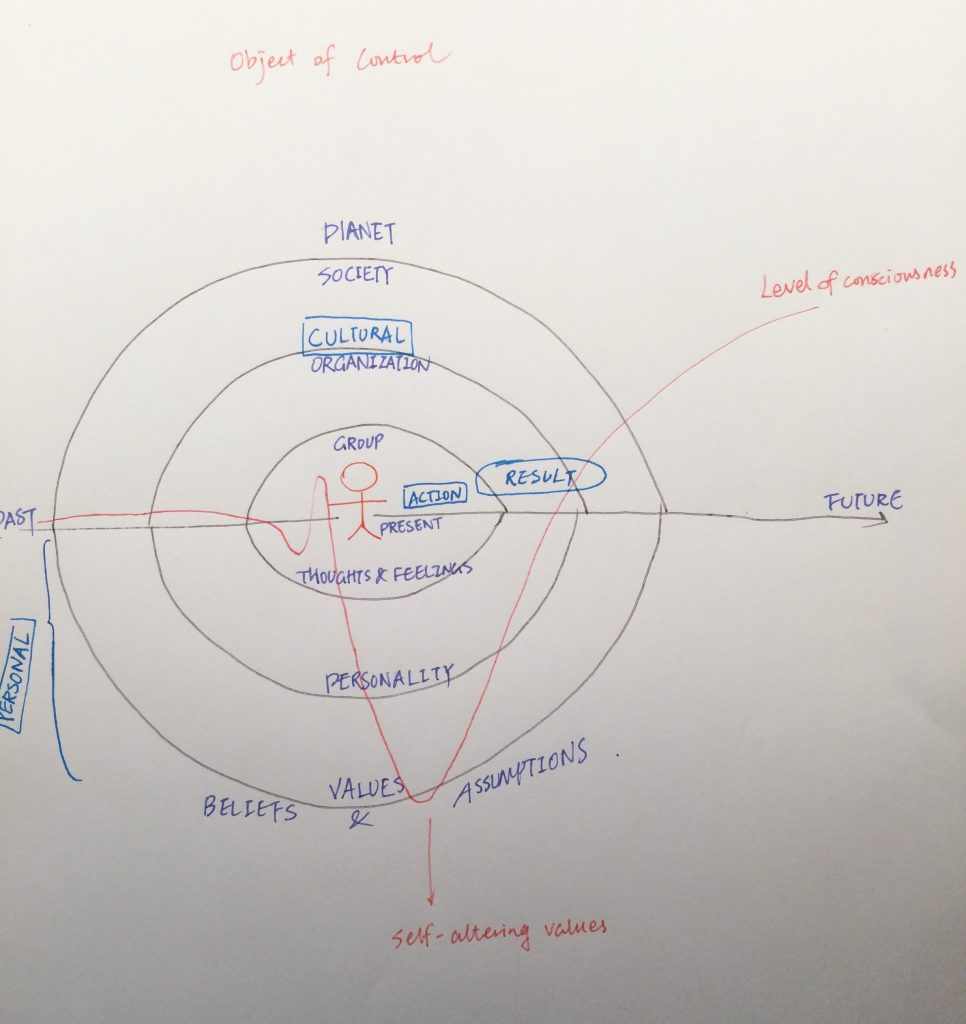 Object of Control
PIANET
SOCIETY
Level of consciousness
CULTURAL
ORGANIZATION
GROUP
RESULT
ACTION
FUTURE
PAST
PRESENT
THOUGHTS & FEELINGS
PERSONAL
PERSONALITY
BELIEFS VALUES & ASSUMPTIONS
Self-altering values